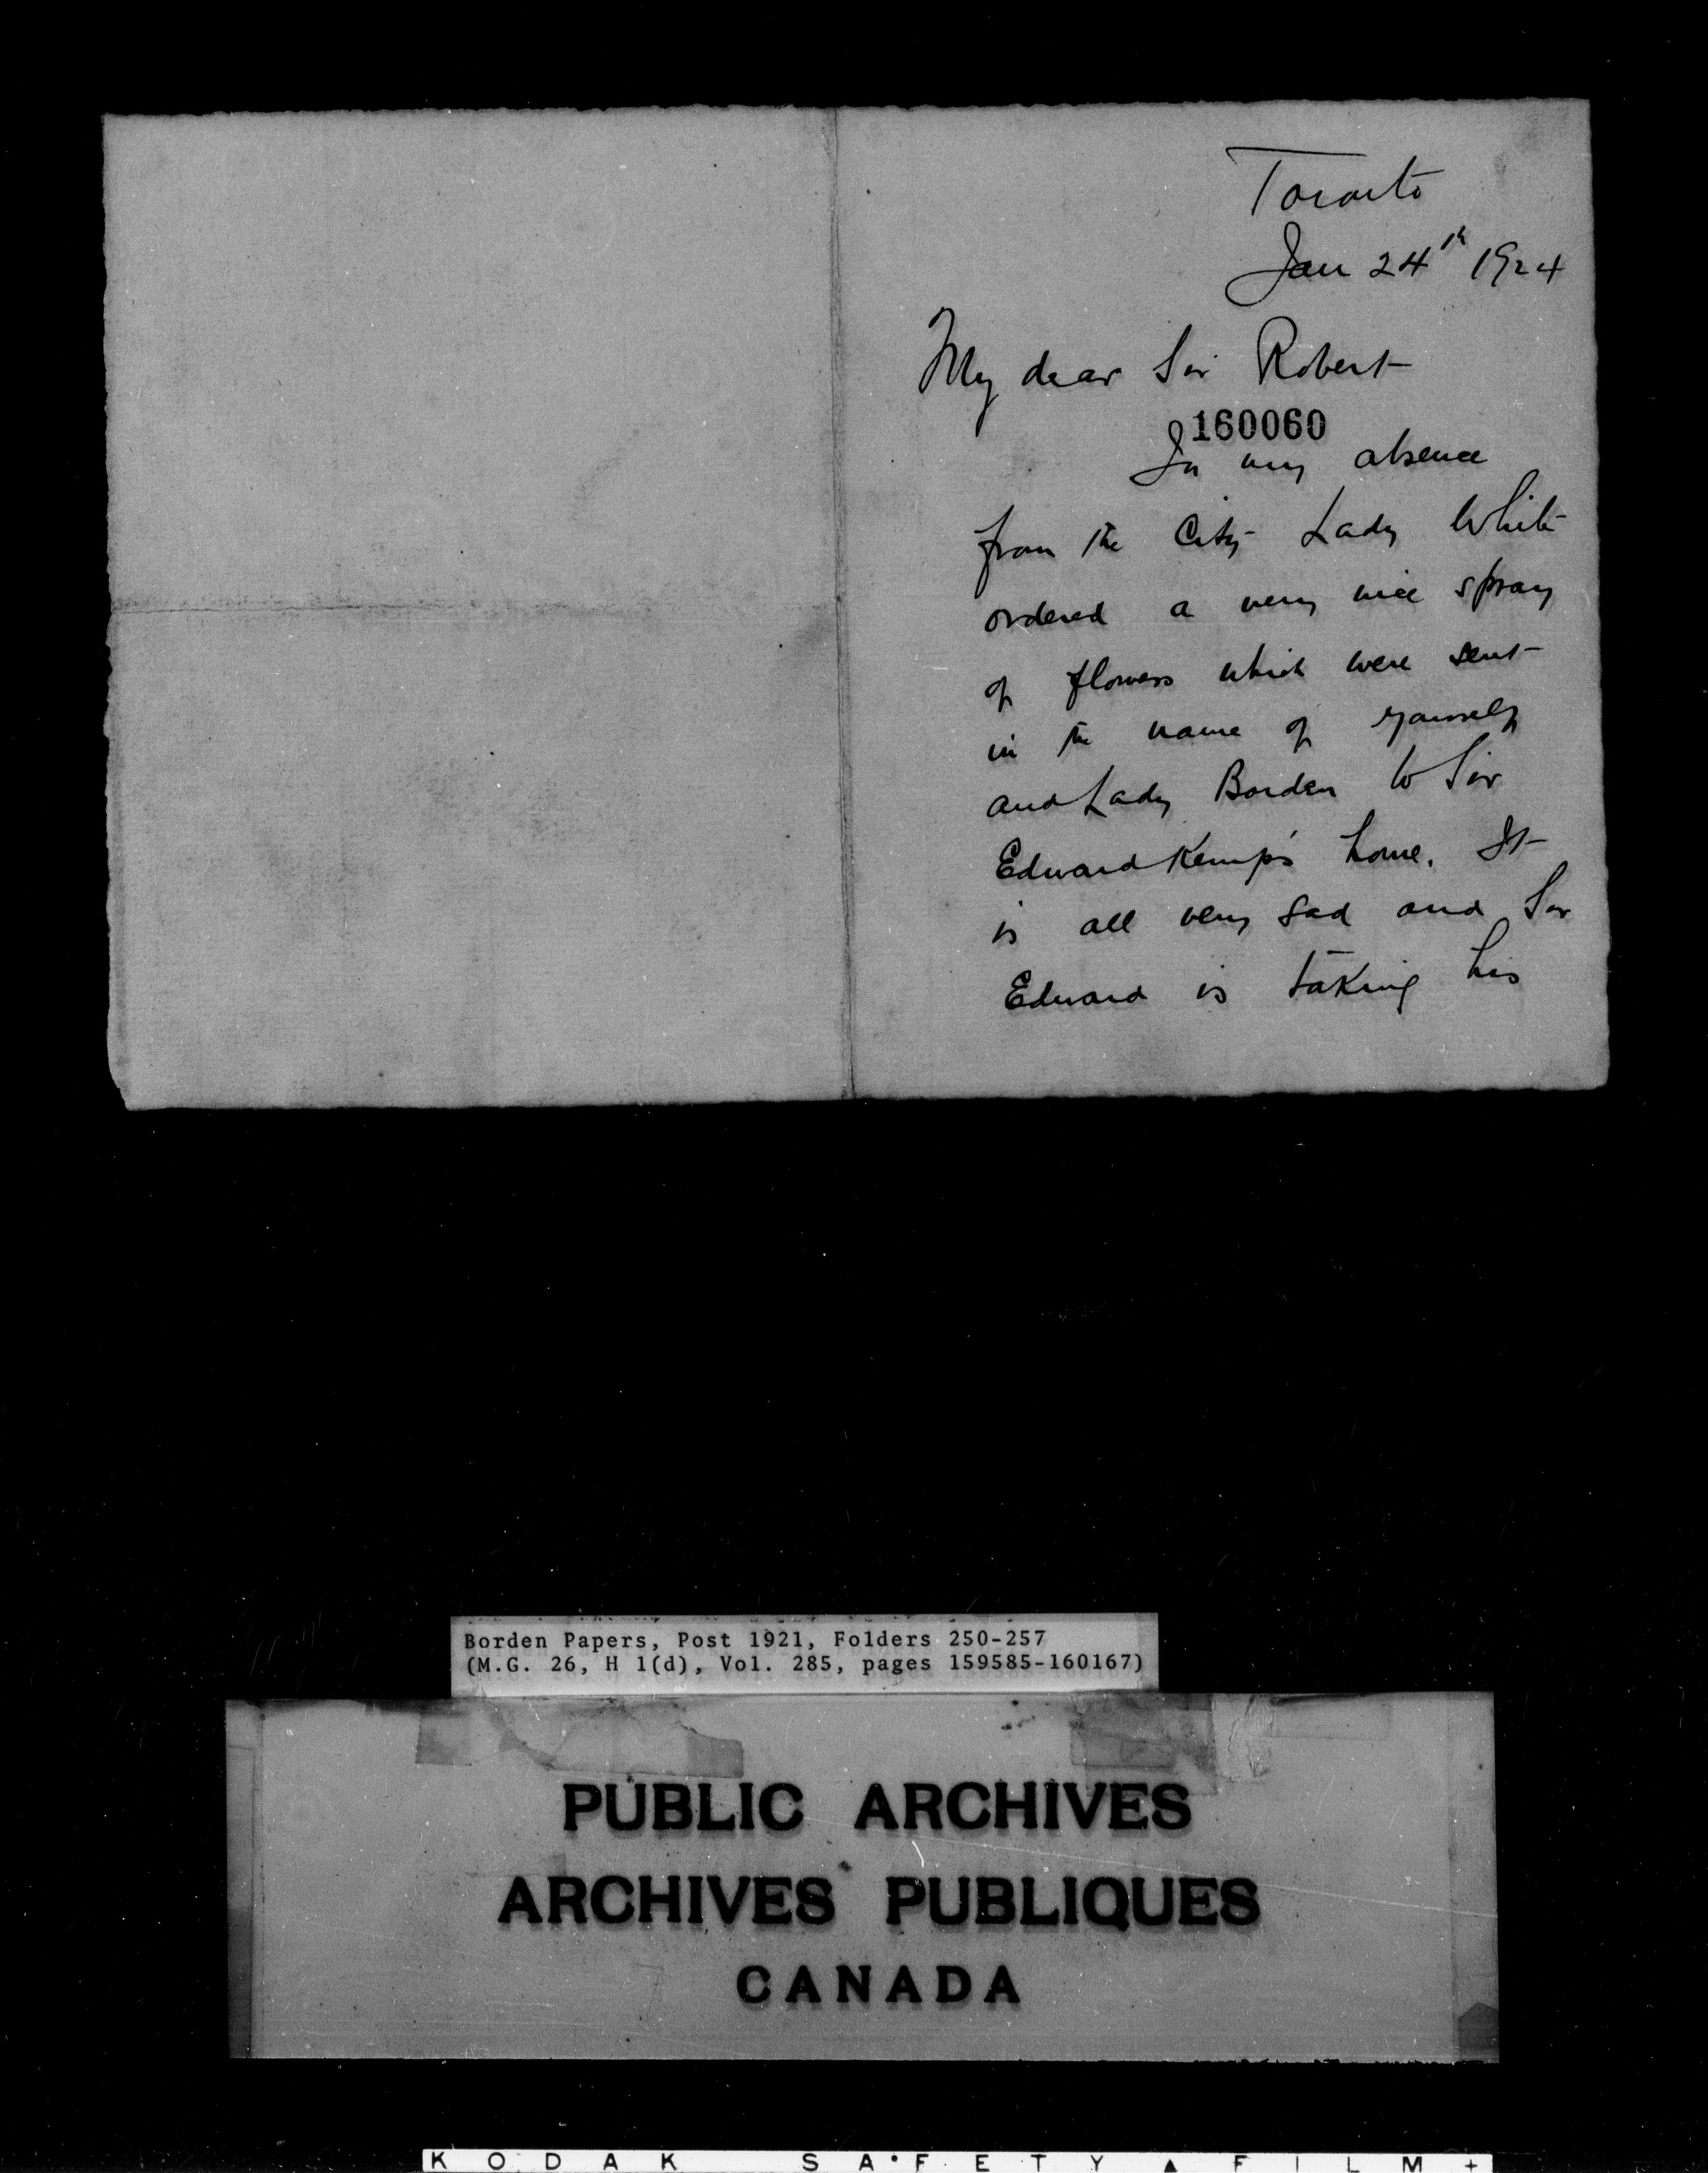 Toronto
Jan 24th 1924
My dear Sir Robert
160060
In my absence
from the City Lady White
ordered a very nice spray
of flowers which were sent
in the name of yourself
and Lady Borden to Sir
Edward Kemp's home. It
is all very sad and Sir
Edward is taking his
Borden Papers, Post 1921, Folders 250-257
(M.G. 26, H 1(d), Vol. 285, pages 159585-160167)
PUBLIC ARCHIVES
ARCHIVES PUBLIQUES
CANADA
KODAK SAFETY ▲ FILM +